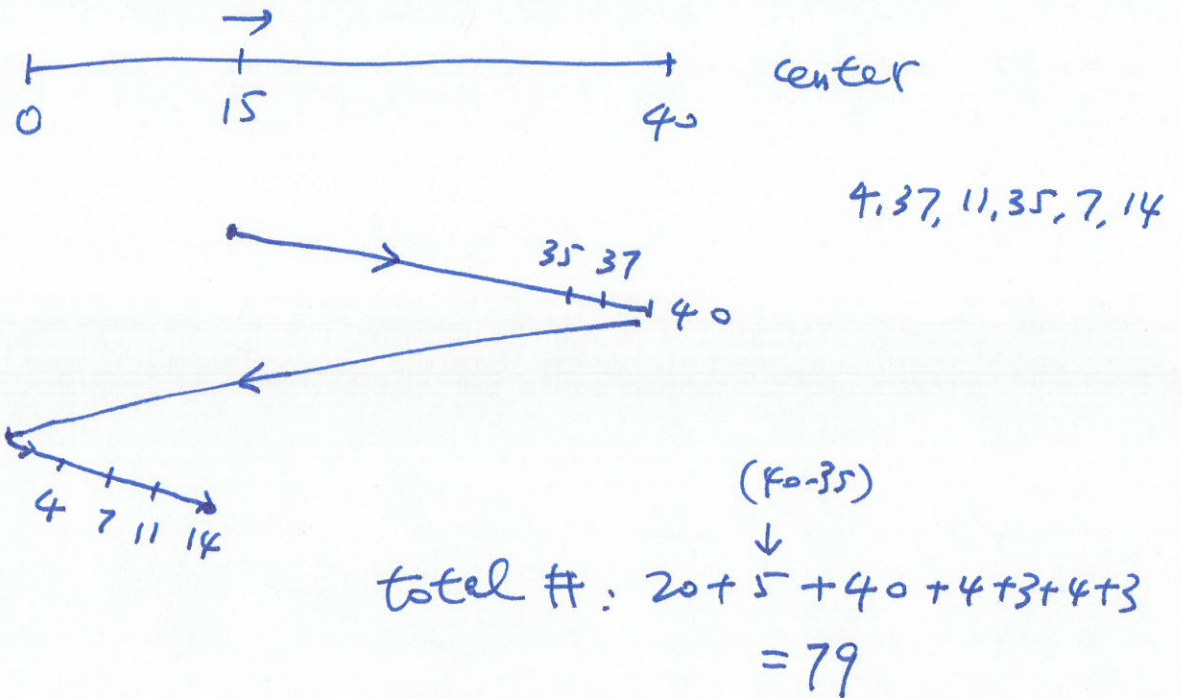 →
0 15 40 center
4, 37, 11, 35, 7, 14
35 37 40
4 7 11 14
(40-35)
↓
total #: 20 + 5 + 40 + 4 + 3 + 4 + 3
= 79